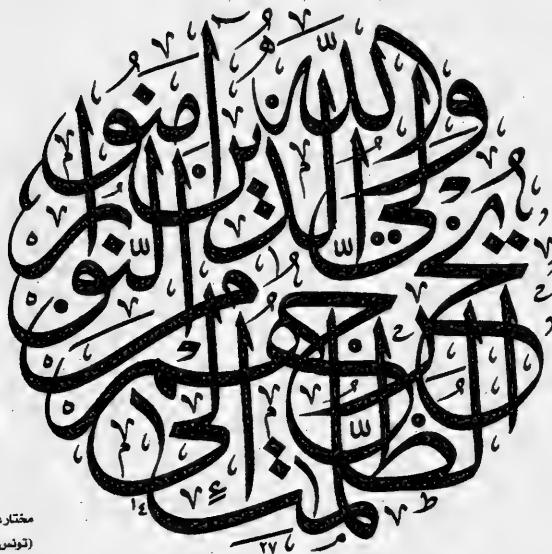 الله ولي الذين امنوا يخرجهم من الظلمت إلى النور
١٤
٢٧
مختار
(تونس